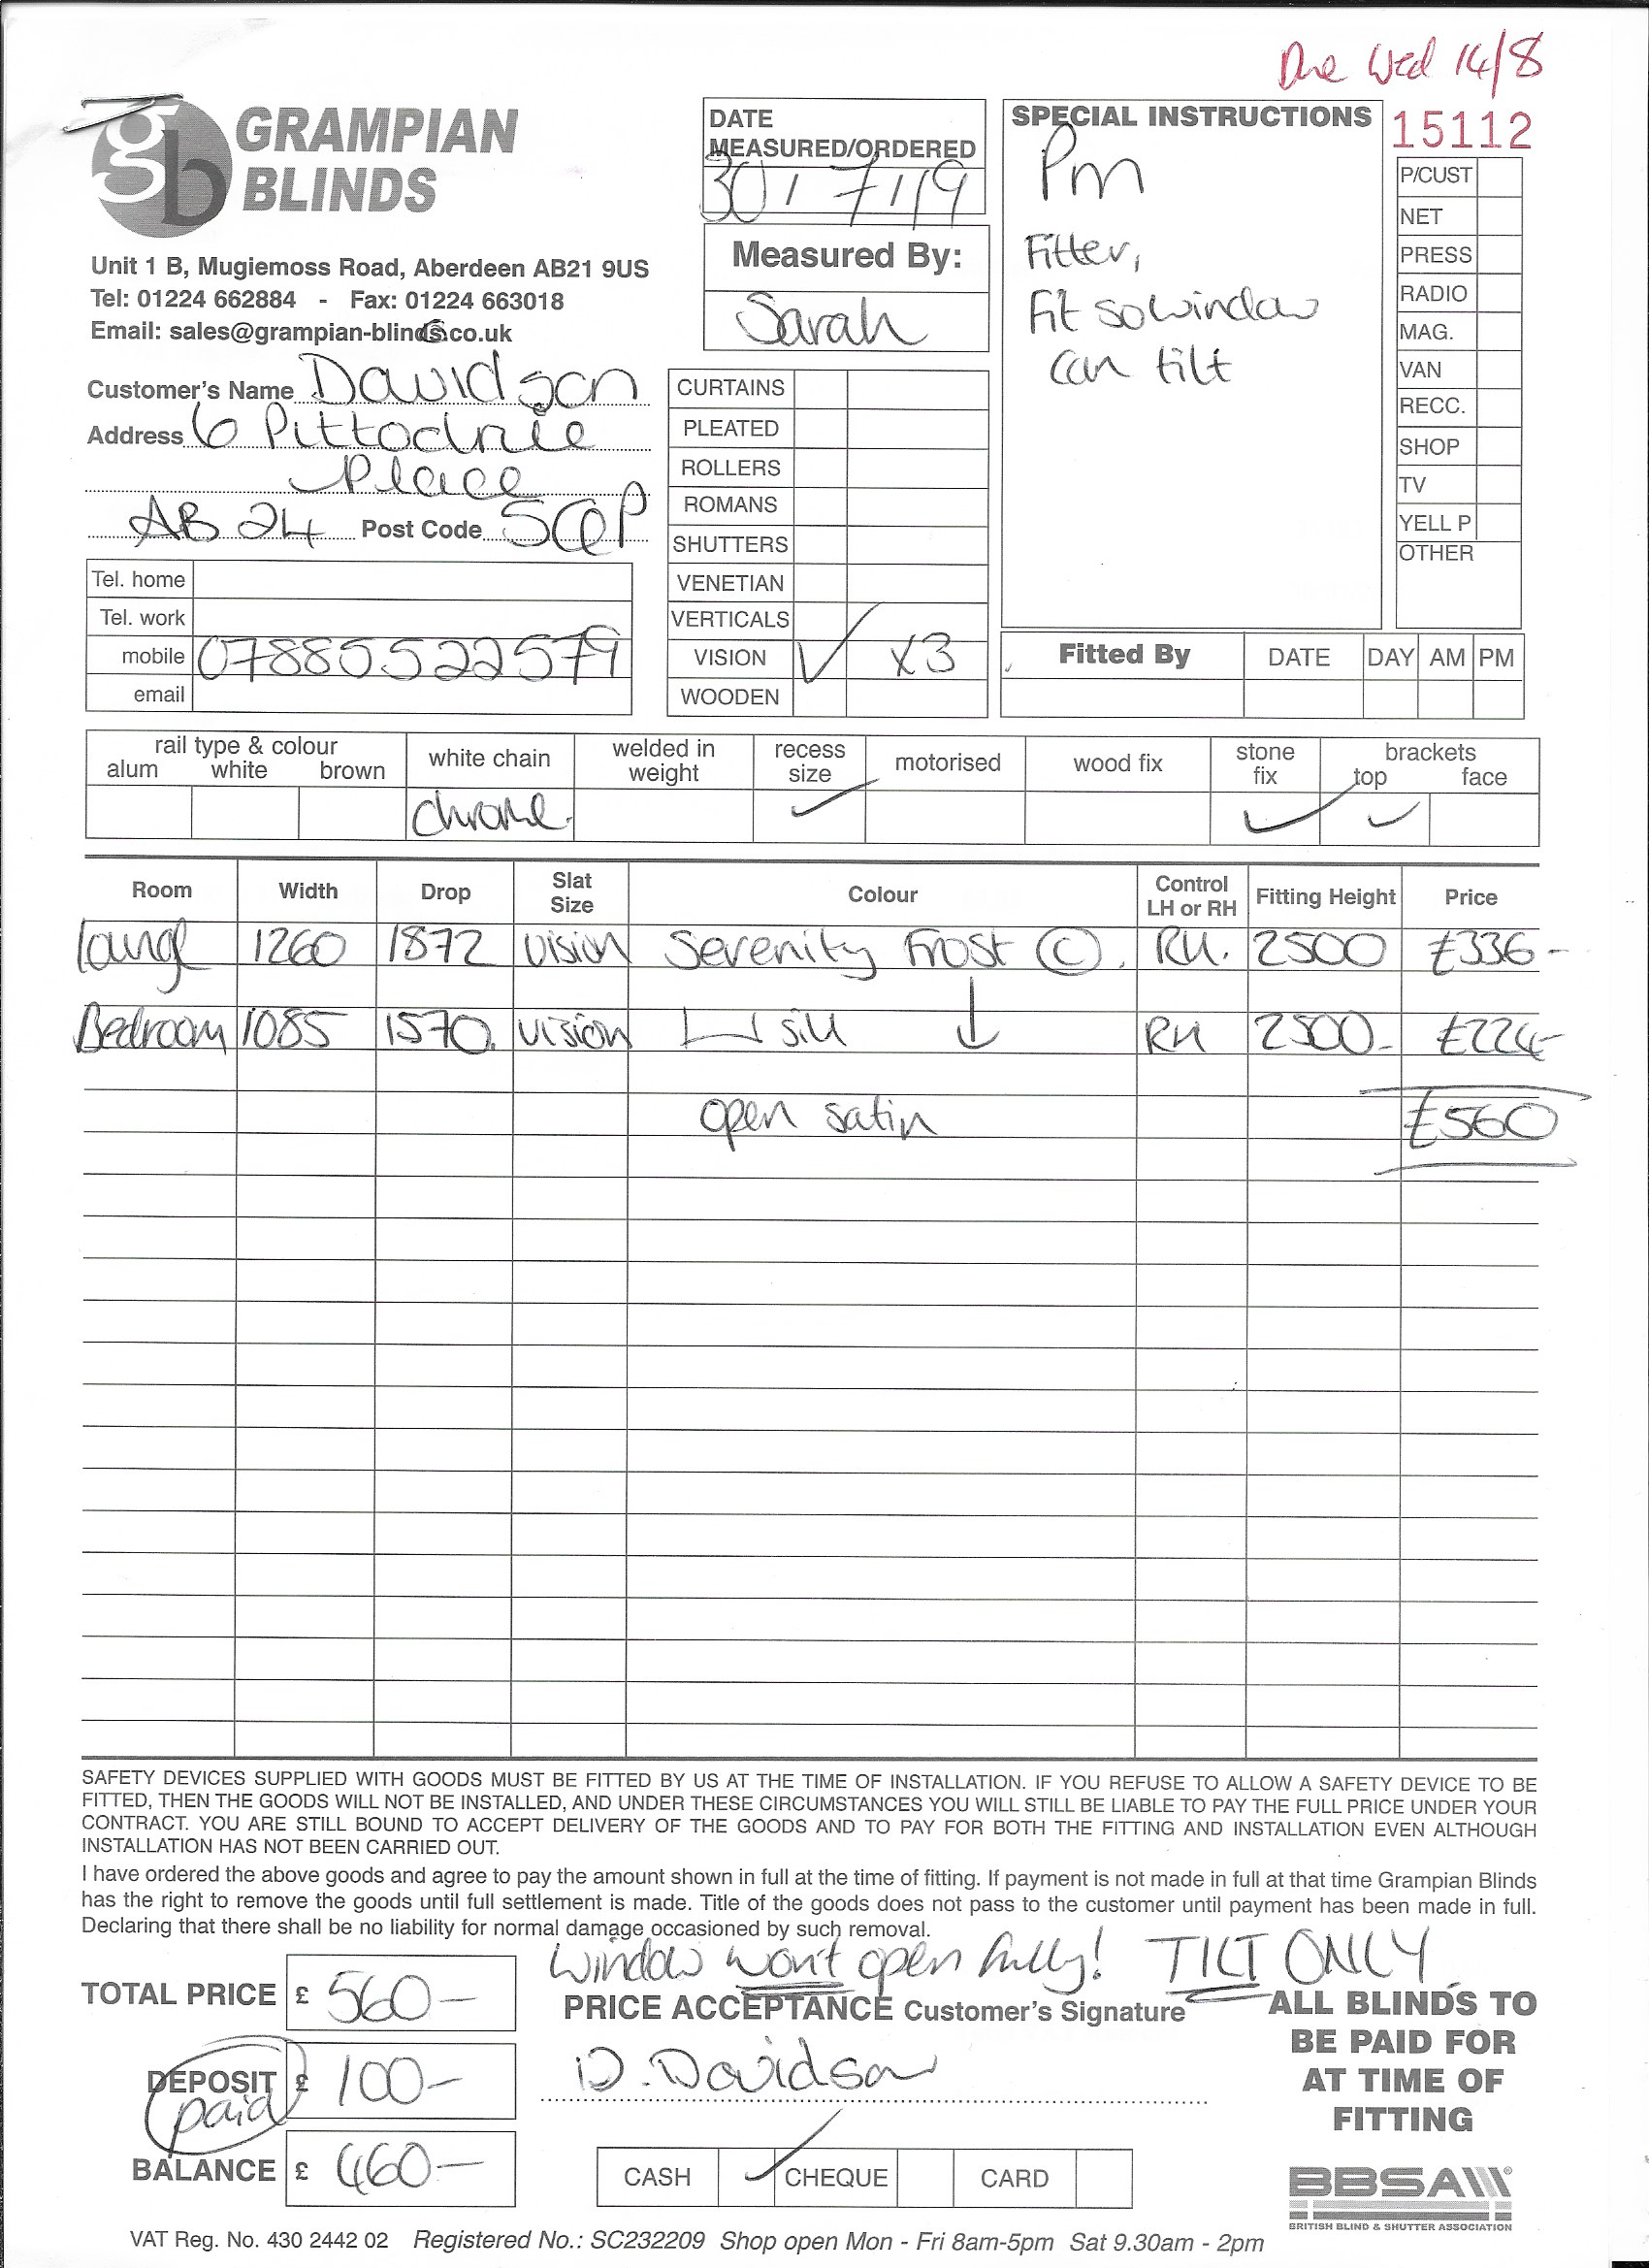 Due Wed 14/8
gb GRAMPIAN BLINDS
Unit 1 B, Mugiemoss Road, Aberdeen AB21 9US
Tel: 01224 662884 - Fax: 01224 663018
Email: sales@grampian-blinds.co.uk
Customer's Name Davidson
Address 6 Pittodrie
Place
AB 24 Post Code
Tel. home
Tel. work
mobile 07885522579
email
DATE
MEASURED/ORDERED
30/7/19
Measured By:
Sarah
CURTAINS
PLEATED
ROLLERS
ROMANS
SHUTTERS
VENETIAN
VERTICALS
VISION ✓ x3
WOODEN
SPECIAL INSTRUCTIONS
Pm
Fitter,
Fit so window
can tilt
15112
P/CUST
NET
PRESS
RADIO
MAG.
VAN
RECC.
SHOP
TV
YELL P
OTHER
Fitted By DATE DAY AM PM
rail type & colour white chain welded in weight recess size motorised wood fix stone fix brackets
alum white brown top face
chrome ✓ ✓ ✓
Room Width Drop Slat Size Colour Control LH or RH Fitting Height Price
lounge 1260 1872 vision Serenity Frost © RH. 2500 £336-
Bedroom 1085 1570 vision sill ↓ RH 2500- £224-
open satin £560
SAFETY DEVICES SUPPLIED WITH GOODS MUST BE FITTED BY US AT THE TIME OF INSTALLATION. IF YOU REFUSE TO ALLOW A SAFETY DEVICE TO BE
FITTED, THEN THE GOODS WILL NOT BE INSTALLED, AND UNDER THESE CIRCUMSTANCES YOU WILL STILL BE LIABLE TO PAY THE FULL PRICE UNDER YOUR
CONTRACT. YOU ARE STILL BOUND TO ACCEPT DELIVERY OF THE GOODS AND TO PAY FOR BOTH THE FITTING AND INSTALLATION EVEN ALTHOUGH
INSTALLATION HAS NOT BEEN CARRIED OUT.
I have ordered the above goods and agree to pay the amount shown in full at the time of fitting. If payment is not made in full at that time Grampian Blinds
has the right to remove the goods until full settlement is made. Title of the goods does not pass to the customer until payment has been made in full.
Declaring that there shall be no liability for normal damage occasioned by such removal.
window won't open fully! TILT ONLY
TOTAL PRICE £ 560-
DEPOSIT £ 100-
paid
BALANCE £ 460-
PRICE ACCEPTANCE Customer's Signature
D. Davidson
CASH ✓ CHEQUE CARD
ALL BLINDS TO
BE PAID FOR
AT TIME OF
FITTING
BBSA
BRITISH BLIND & SHUTTER ASSOCIATION
VAT Reg. No. 430 2442 02 Registered No.: SC232209 Shop open Mon - Fri 8am-5pm Sat 9.30am - 2pm